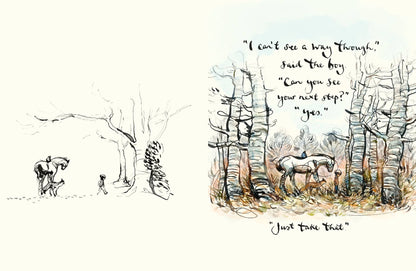 "I can't see a way through,"
said the boy.
"Can you see
your next step?"
"Yes."
"Just take that"